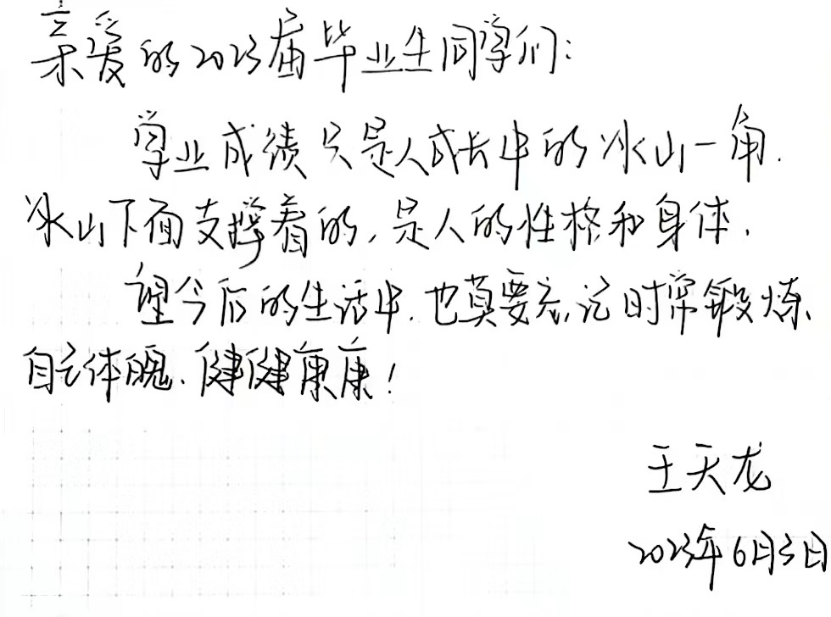 亲爱的2023届毕业生同学们:
学业成绩只是人成长中的冰山一角.
冰山下面支撑着的,是人的性格和身体.
望今后的生活中,也莫要忘记时常锻炼
自己体魄.健健康康!
王天龙
2023年6月3日